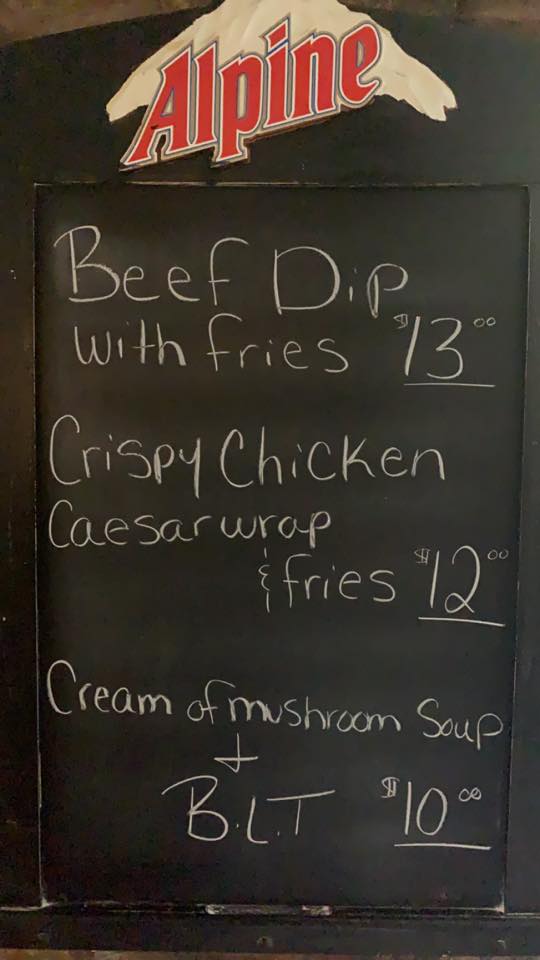 Alpine
Beef Dip
with fries $13.00
Crispy Chicken
Caesar wrap
& fries $12.00
Cream of mushroom Soup
+
B.L.T $10.00